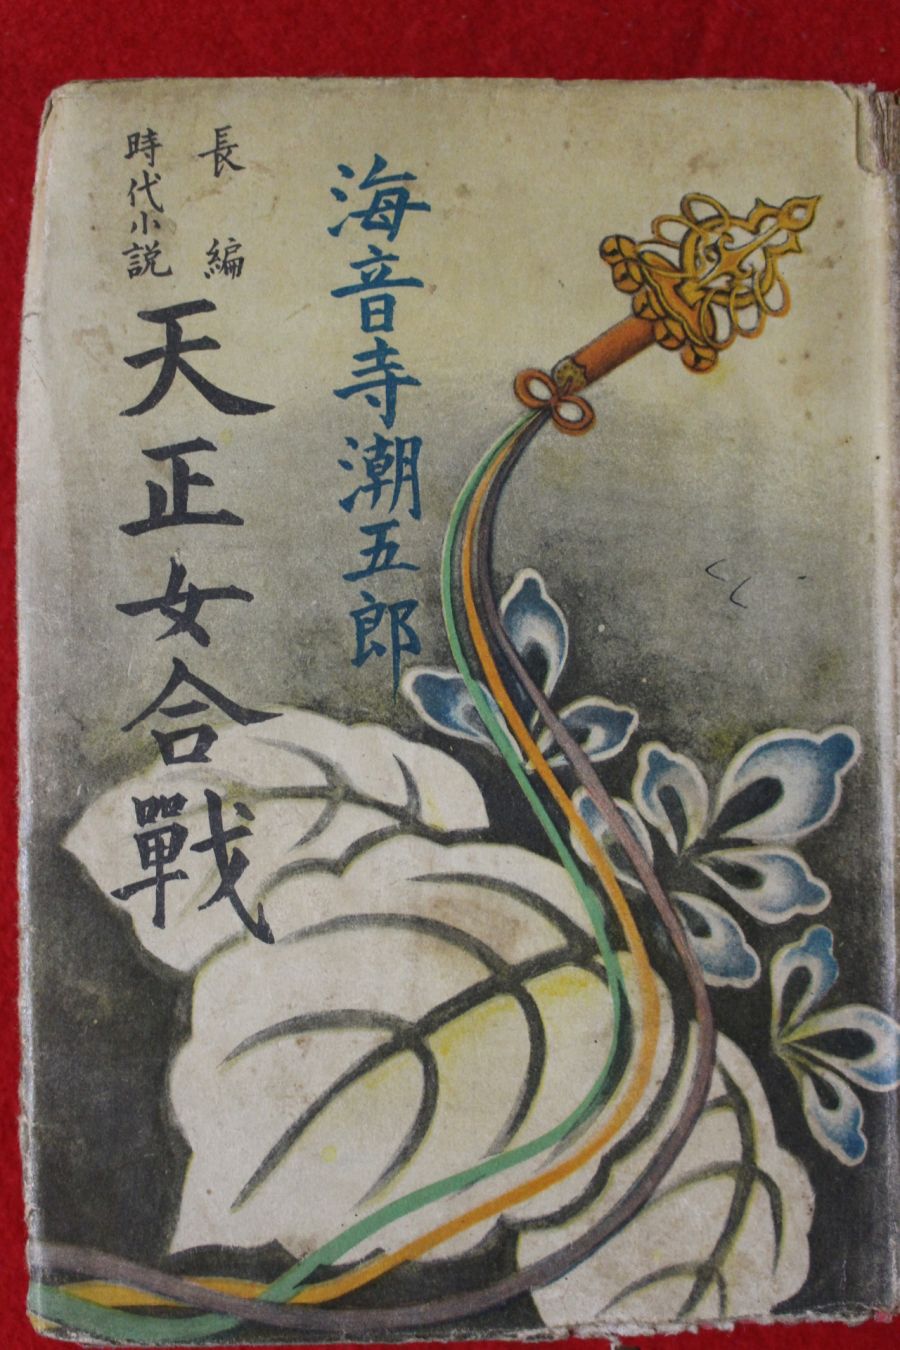 海音寺潮五郎
長編
時代小説
天正女合戰